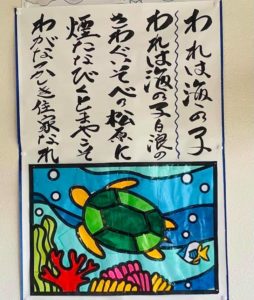 われは海の子
われは海の子白浪の
さわぐいそべの松原に
煙たなびくとまやこそ
わがなつかしき住家なれ